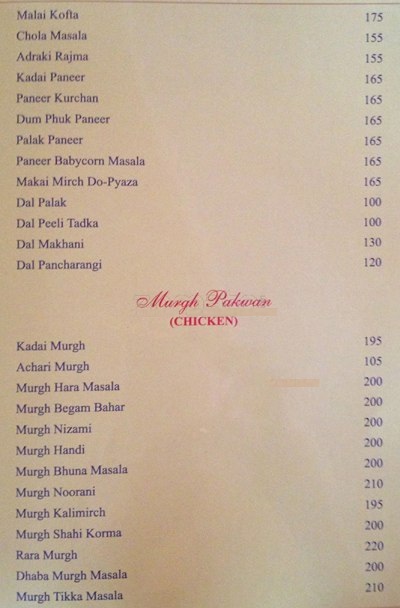 Malai Kofta 175
Chola Masala 155
Adraki Rajma 155
Kadai Paneer 165
Paneer Kurchan 165
Dum Phuk Paneer 165
Palak Paneer 165
Paneer Babycorn Masala 165
Makai Mirch Do-Pyaza 165
Dal Palak 100
Dal Peeli Tadka 100
Dal Makhani 130
Dal Pancharangi 120
Murgh Pakwan
(CHICKEN)
Kadai Murgh 195
Achari Murgh 105
Murgh Hara Masala 200
Murgh Begam Bahar 200
Murgh Nizami 200
Murgh Handi 200
Murgh Bhuna Masala 200
Murgh Noorani 210
Murgh Kalimirch 195
Murgh Shahi Korma 200
Rara Murgh 220
Dhaba Murgh Masala 200
Murgh Tikka Masala 210